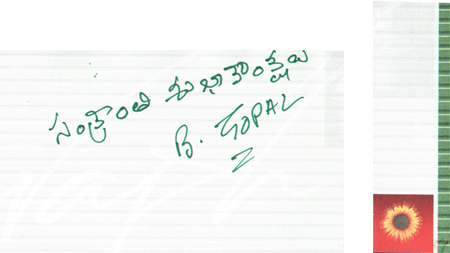 సంక్రాంతి శుభాకాంక్షలు
B. GOPAL